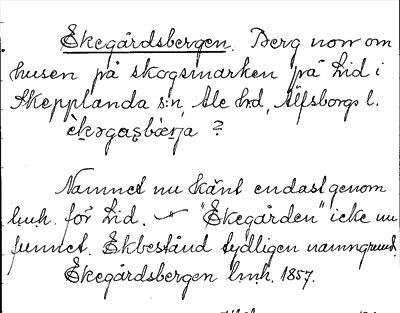 Ekegårdsbergen. Berg norr om
husen på skogsmarken på Lid i
Skepplanda s:n, Ale hd, Älfsborgs l.
èkǝgaṣbær̀ja ?
Namnet nu känt endast genom
lmh. för Lid. — "Ekegården" icke nu
funnet. Ekbestånd tydligen namngrund.
Ekegårdsbergen lmh. 1857.